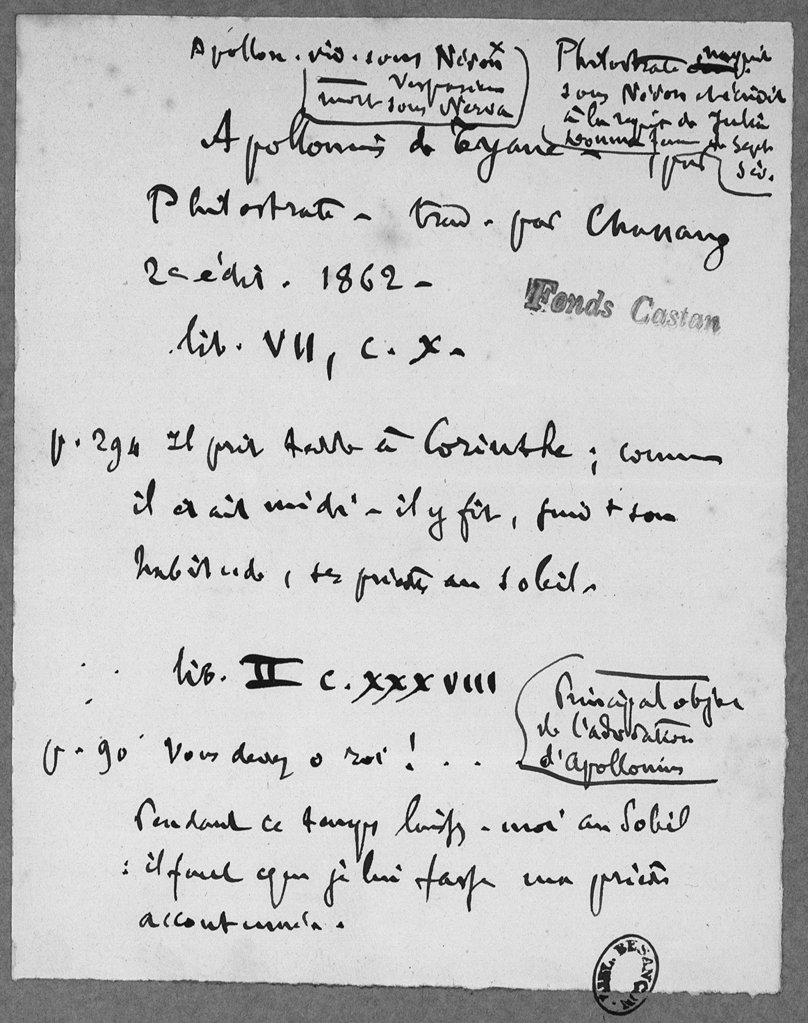 Apollon. viv. sous Néron
Vespasien
mort sous Nerva
Philostrate naquit
sous Néron et écrivit
à la régie de Julia
Domna femme de Sept.
Sév.
Apollonius de Tyane - par
Philostrate - trad. par Chassang
2e édit. 1862 -
Fonds Castan
lib. VII, c. X -
p. 294 Il prit terre à Corinthe ; comme
il était midi - il y fit, suivt son
habitude, ses prières au soleil -
lib. II c. XXXVIII
Principal objet
de l'adoration
d'Apollonius
p. 90 Vous devez o roi ! . . .
Pendant ce temps laissez-moi au Soleil
: il faut que je lui fasse ma prière
accoutumée.
BIBL. BESANÇON